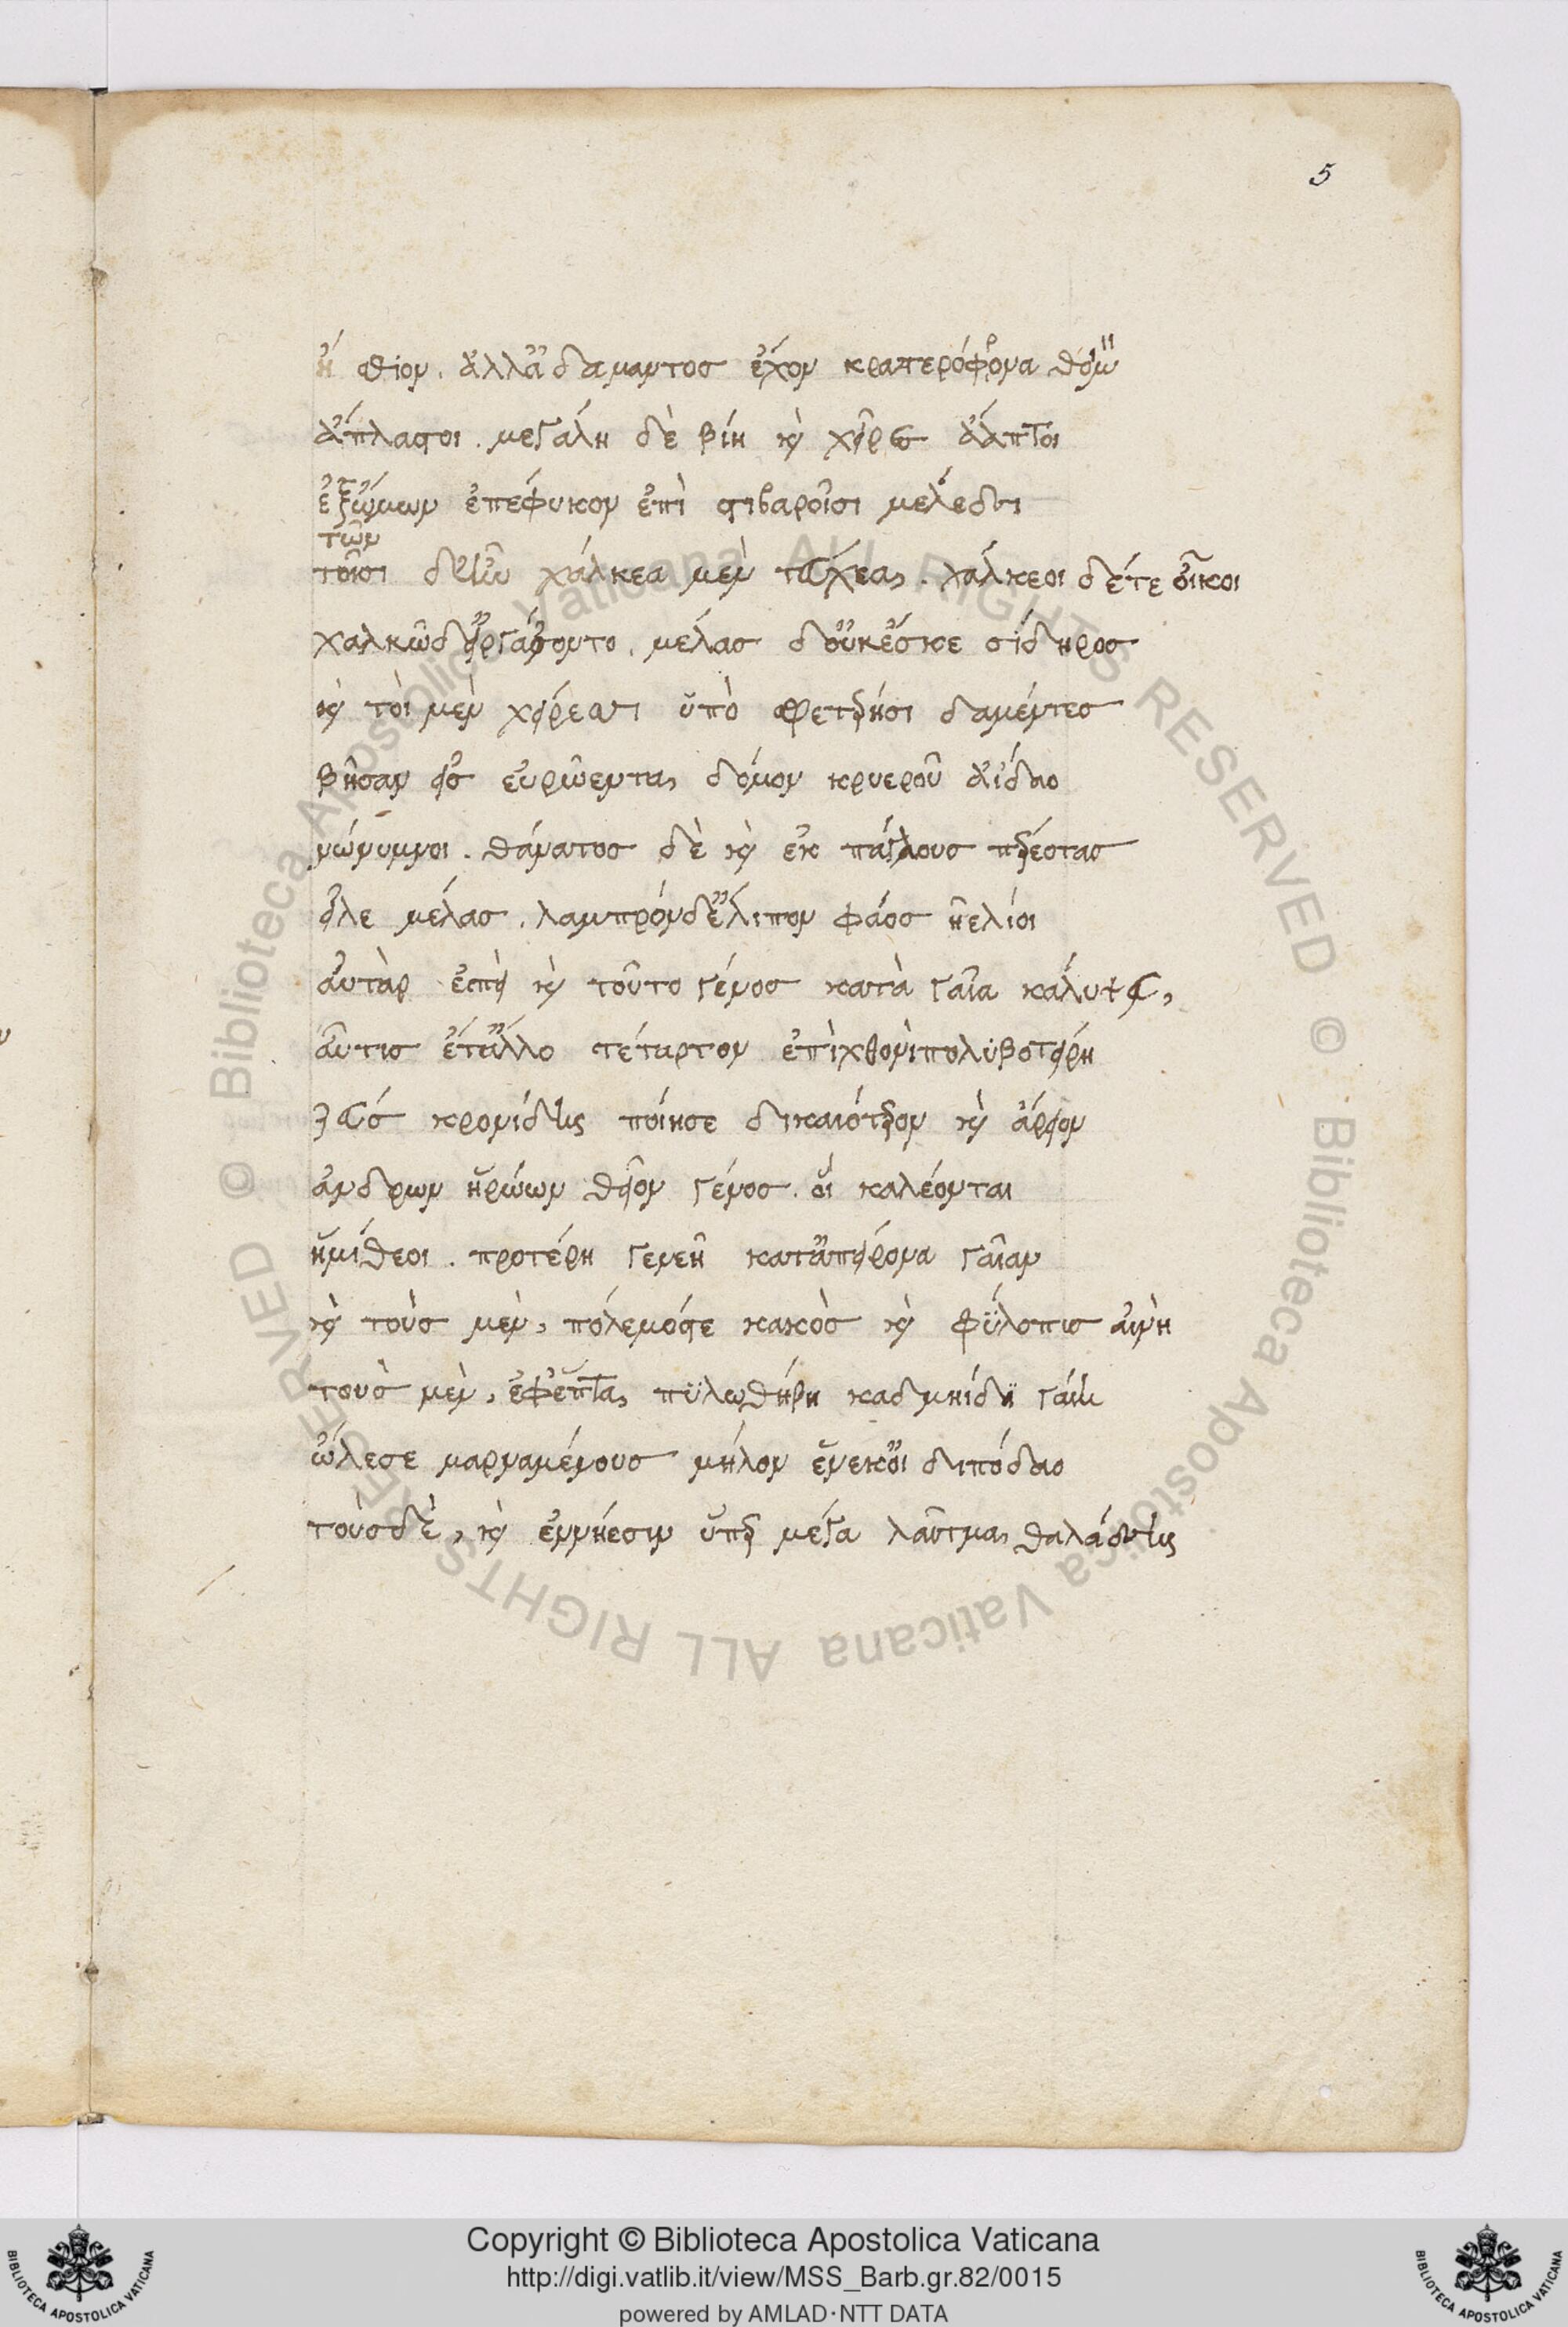 5
ἤσθιον. ἀλλ' ἀδάμαντος ἔχον κρατερόφρονα θυμὸν
ἄπλαστοι. μεγάλη δὲ βίη καὶ χεῖρες ἄαπτοι
ἐξ ὤμων ἐπέφυκον ἐπὶ στιβαροῖσι μέλεσσι
τῶν
τοῖσι δ' ἦν χάλκεα μὲν τεύχεα, χάλκεοι δέ τε οἶκοι
χαλκῶ δ' εἰργάζοντο, μέλας δ' οὐκ ἔσκε σίδηρος
καὶ τοὶ μὲν χείρεσσι ὑπὸ σφετέρησι δαμέντες
βῆσαν εἰς εὐρώεντα δόμον κρυεροῦ ἀίδαο
νώνυμνοι. θάνατος δὲ καὶ ἐκπάγλους περ ἐόντας
εἷλε μέλας. λαμπρὸν δ' ἔλιπον φάος ἠελίοι
αὐτὰρ ἐπεὶ καὶ τοῦτο γένος κατὰ γαῖα κάλυψεν,
αὖτις ἔτ' ἄλλο τέταρτον ἐπὶ χθονὶ πολυβοτείρη
ζεὺς κρονίδης ποίησε δικαιότερον καὶ ἄρειον
ἀνδρων ἡρώων θεῖον γένος. οἳ καλέονται
ἡμίθεοι. προτέρη γενεῆ κατ' ἀπείρονα γαῖαν
καὶ τοὺς μὲν, πόλεμός τε κακὸς καὶ φύλοπις αἰνὴ
τοὺς μὲν, ἐφ' ἑπτα πυλω θήβη καδμηίδι γαίη
ὤλεσε μαρναμένους μήλον ἕνεκ' οἰδιπόδαο
τοὺς δὲ, καὶ ἐν νήεσιν ὑπὲρ μέγα λαῖτμα θαλάσσης
© Biblioteca Apostolica Vaticana ALL RIGHTS RESERVED © Biblioteca Apostolica Vaticana ALL RIGHTS RESERVED
BIBLIOTECA APOSTOLICA VATICANA
Copyright © Biblioteca Apostolica Vaticana
http://digi.vatlib.it/view/MSS_Barb.gr.82/0015
powered by AMLAD·NTT DATA
BIBLIOTECA APOSTOLICA VATICANA